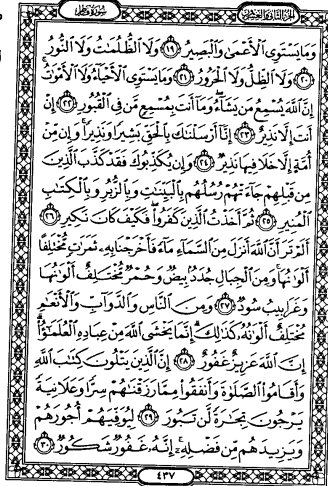 الجزء الثاني والعشرون سورة فاطر
وَمَا يَسْتَوِى ٱلْأَعْمَىٰ وَٱلْبَصِيرُ ١٩ وَلَا ٱلظُّلُمَٰتُ وَلَا ٱلنُّورُ
٢٠ وَلَا ٱلظِّلُّ وَلَا ٱلْحَرُورُ ٢١ وَمَا يَسْتَوِى ٱلْأَحْيَآءُ وَلَا ٱلْأَمْوَٰتُ
إِنَّ ٱللَّهَ يُسْمِعُ مَن يَشَآءُ وَمَآ أَنتَ بِمُسْمِعٍ مَّن فِى ٱلْقُبُورِ ٢٢ إِنْ
أَنتَ إِلَّا نَذِيرٌ ٢٣ إِنَّآ أَرْسَلْنَٰكَ بِٱلْحَقِّ بَشِيرًا وَنَذِيرًا وَإِن مِّنْ
أُمَّةٍ إِلَّا خَلَا فِيهَا نَذِيرٌ ٢٤ وَإِن يُكَذِّبُوكَ فَقَدْ كَذَّبَ ٱلَّذِينَ
مِن قَبْلِهِمْ جَآءَتْهُمْ رُسُلُهُم بِٱلْبَيِّنَٰتِ وَبِٱلزُّبُرِ وَبِٱلْكِتَٰبِ
ٱلْمُنِيرِ ٢٥ ثُمَّ أَخَذْتُ ٱلَّذِينَ كَفَرُوا۟ فَكَيْفَ كَانَ نَكِيرِ ٢٦
أَلَمْ تَرَ أَنَّ ٱللَّهَ أَنزَلَ مِنَ ٱلسَّمَآءِ مَآءً فَأَخْرَجْنَا بِهِۦ ثَمَرَٰتٍ مُّخْتَلِفًا
أَلْوَٰنُهَا وَمِنَ ٱلْجِبَالِ جُدَدٌۢ بِيضٌ وَحُمْرٌ مُّخْتَلِفٌ أَلْوَٰنُهَا
وَغَرَابِيبُ سُودٌ ٢٧ وَمِنَ ٱلنَّاسِ وَٱلدَّوَآبِّ وَٱلْأَنْعَٰمِ
مُخْتَلِفٌ أَلْوَٰنُهُۥ كَذَٰلِكَ إِنَّمَا يَخْشَى ٱللَّهَ مِنْ عِبَادِهِ ٱلْعُلَمَٰٓؤُا۟
إِنَّ ٱللَّهَ عَزِيزٌ غَفُورٌ ٢٨ إِنَّ ٱلَّذِينَ يَتْلُونَ كِتَٰبَ ٱللَّهِ
وَأَقَامُوا۟ ٱلصَّلَوٰةَ وَأَنفَقُوا۟ مِمَّا رَزَقْنَٰهُمْ سِرًّا وَعَلَانِيَةً
يَرْجُونَ تِجَٰرَةً لَّن تَبُورَ ٢٩ لِيُوَفِّيَهُمْ أُجُورَهُمْ
وَيَزِيدَهُم مِّن فَضْلِهِۦٓ إِنَّهُۥ غَفُورٌ شَكُورٌ ٣٠
٤٣٧